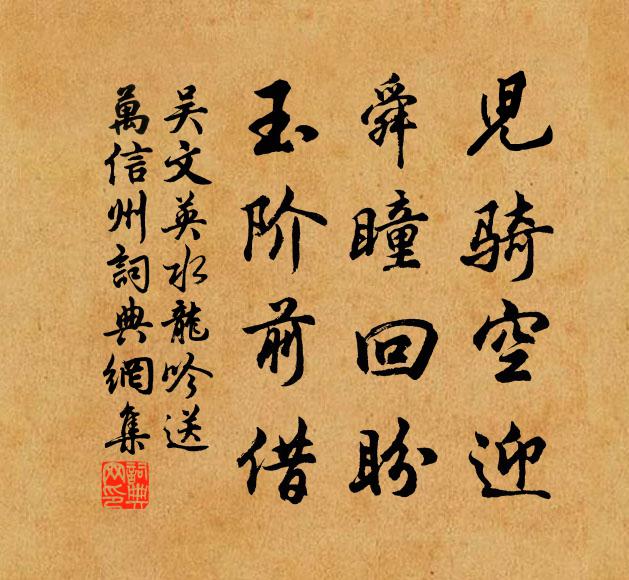 児骑空迎
舜瞳回盼
玉阶前借
吴文英水龍吟送
萬信州詞典網集
詞典
网印